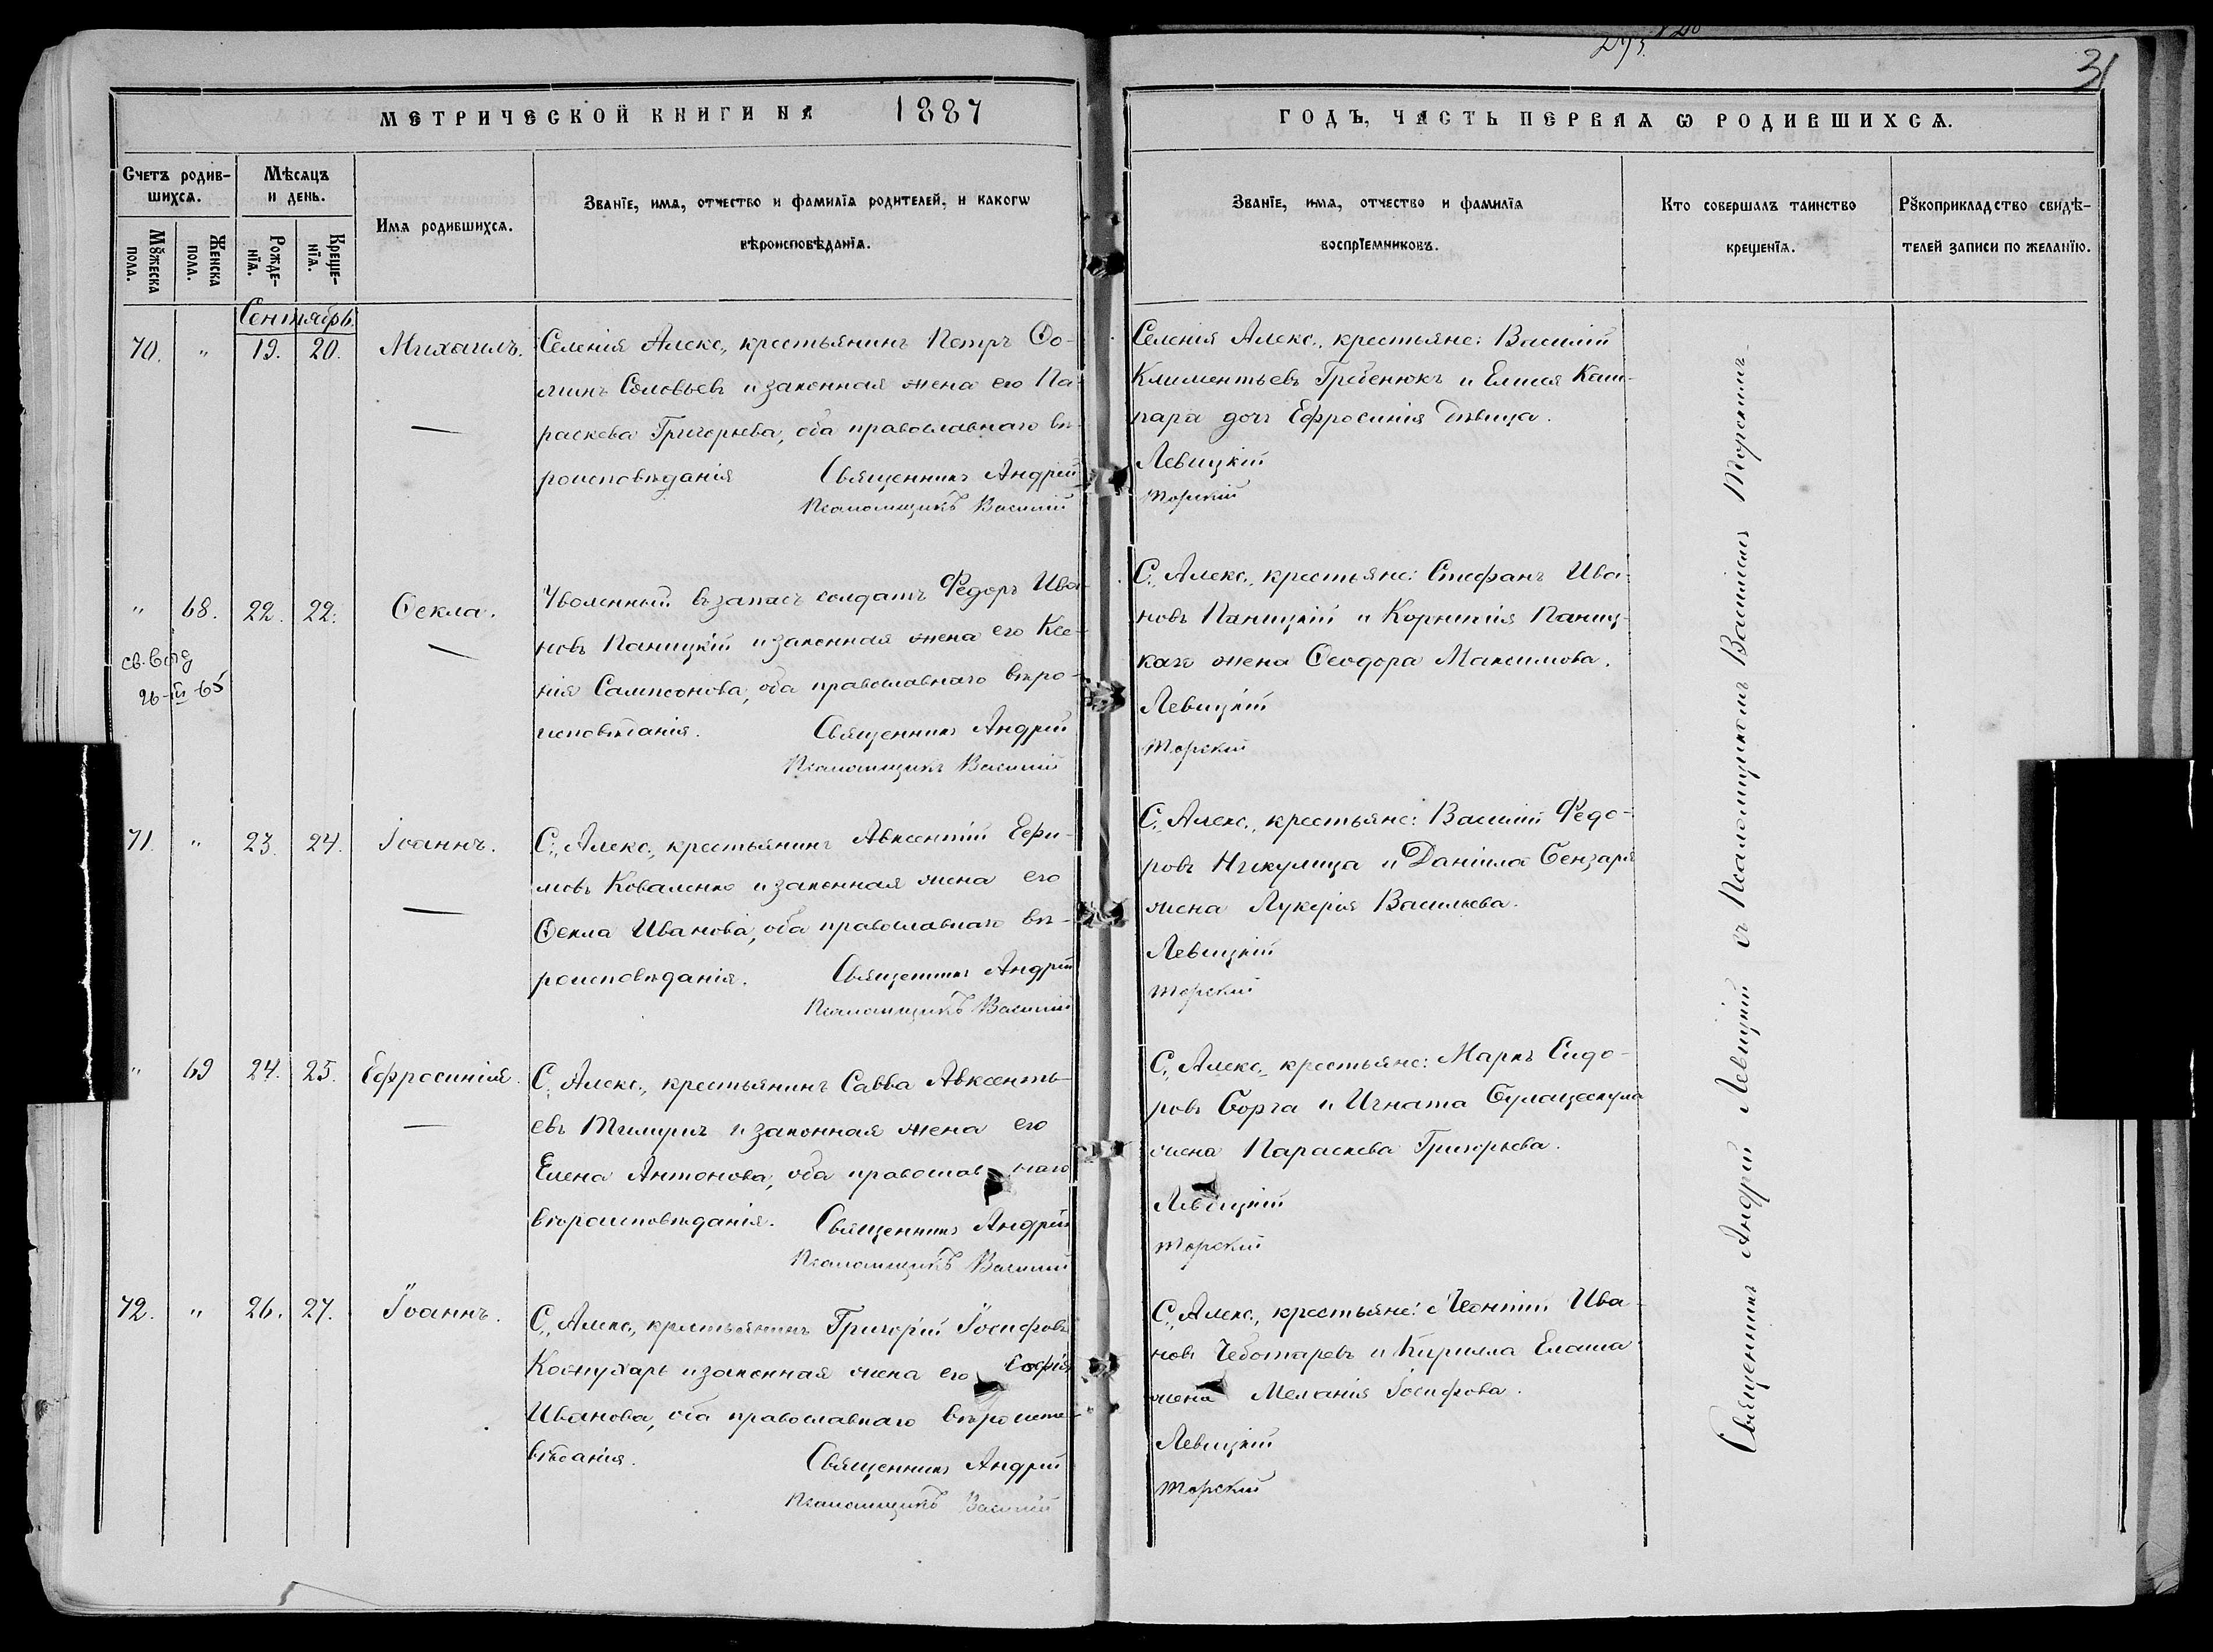 31
МЕТРИЧЕСКОЙ КНИГИ НА 1887
ГОДЪ, ЧАСТЬ ПЕРВАЯ Ѡ РОДИВШИХСѦ.
Счетъ родив-
шихсѧ.
Мѣсѧцъ
и день.
Имѧ родившихсѧ.
Званїе, имѧ, отчество и фамилїѧ родителей, и какогѡ
вѣроисповѣданїѧ.
Мꙋжеска
пола.
Женска
пола.
Рожде-
нїѧ.
Креще-
нїѧ.
Званїе, имѧ, отчество и фамилїѧ
воспрїемниковъ.
Кто совершалъ таинство
крещенїѧ.
Рꙋкоприкладство свидѣ-
телей записи по желанїю.
Сентябрь.
70. " 19. 20. Михаилъ. Селенія Алекс., крестьянинъ Петръ Ѳо-
минъ Соловьевъ и законная жена его Па-
раскева Григорьева, оба православнаго вѣ-
роисповѣданія Священникъ Андрей
Псаломщикъ Василій
Селенія Алекс., крестьяне: Василій
Климентьевъ Гребенюкъ и Елисея
дочь Ефросинія дѣвица.
Левицкій
Торскій
" 68. 22. 22. Ѳекла. Уволенный въ запасъ солдатъ Федоръ Ива-
новъ Паницкій и законная жена его Ксе-
нія Сампсонова, оба православнаго вѣро-
исповѣданія. Священникъ Андрей
Псаломщикъ Василій
26-III-65
С., Алекс., крестьяне: Стефанъ Ива-
новъ Паницкій и Корнилія Паниц-
каго жена Ѳеодора Максимова.
Левицкій
Торскій
71. " 23. 24. Іоаннъ. С., Алекс., крестьянинъ Авксентій Ефи-
мовъ Коваленко и законная жена его
Ѳекла Иванова, оба православнаго вѣ-
роисповѣданія. Священникъ Андрей
Псаломщикъ Василій
С., Алекс., крестьяне: Василій Федо-
ровъ Никулица и Даніила Бензаря
жена Лукерія Васильева.
Левицкій
Торскій
" 69 24. 25. Ефросинія. С., Алекс., крестьянинъ Савва Авксенть-
евъ и законная жена его
Елена Антонова, оба православнаго
вѣроисповѣданія. Священникъ Андрей
Псаломщикъ Василій
С., Алекс., крестьяне: Маркъ Сидо-
ровъ Борга и Игната
жена Параскева Григорьева.
Левицкій
Торскій
72. " 26. 27. Іоаннъ. С., Алекс., крестьянинъ Григорій Іосифовъ
и законная жена его Софія
Иванова, оба православнаго вѣроиспо-
вѣданія. Священникъ Андрей
Псаломщикъ Василій
С., Алекс., крестьяне: Леонтій Ива-
новъ Чеботаревъ и Кирилла
жена Меланія Іосифова.
Левицкій
Торскій
Священникъ Андрей Левицкій съ Псаломщикомъ Василіемъ Торскимъ.